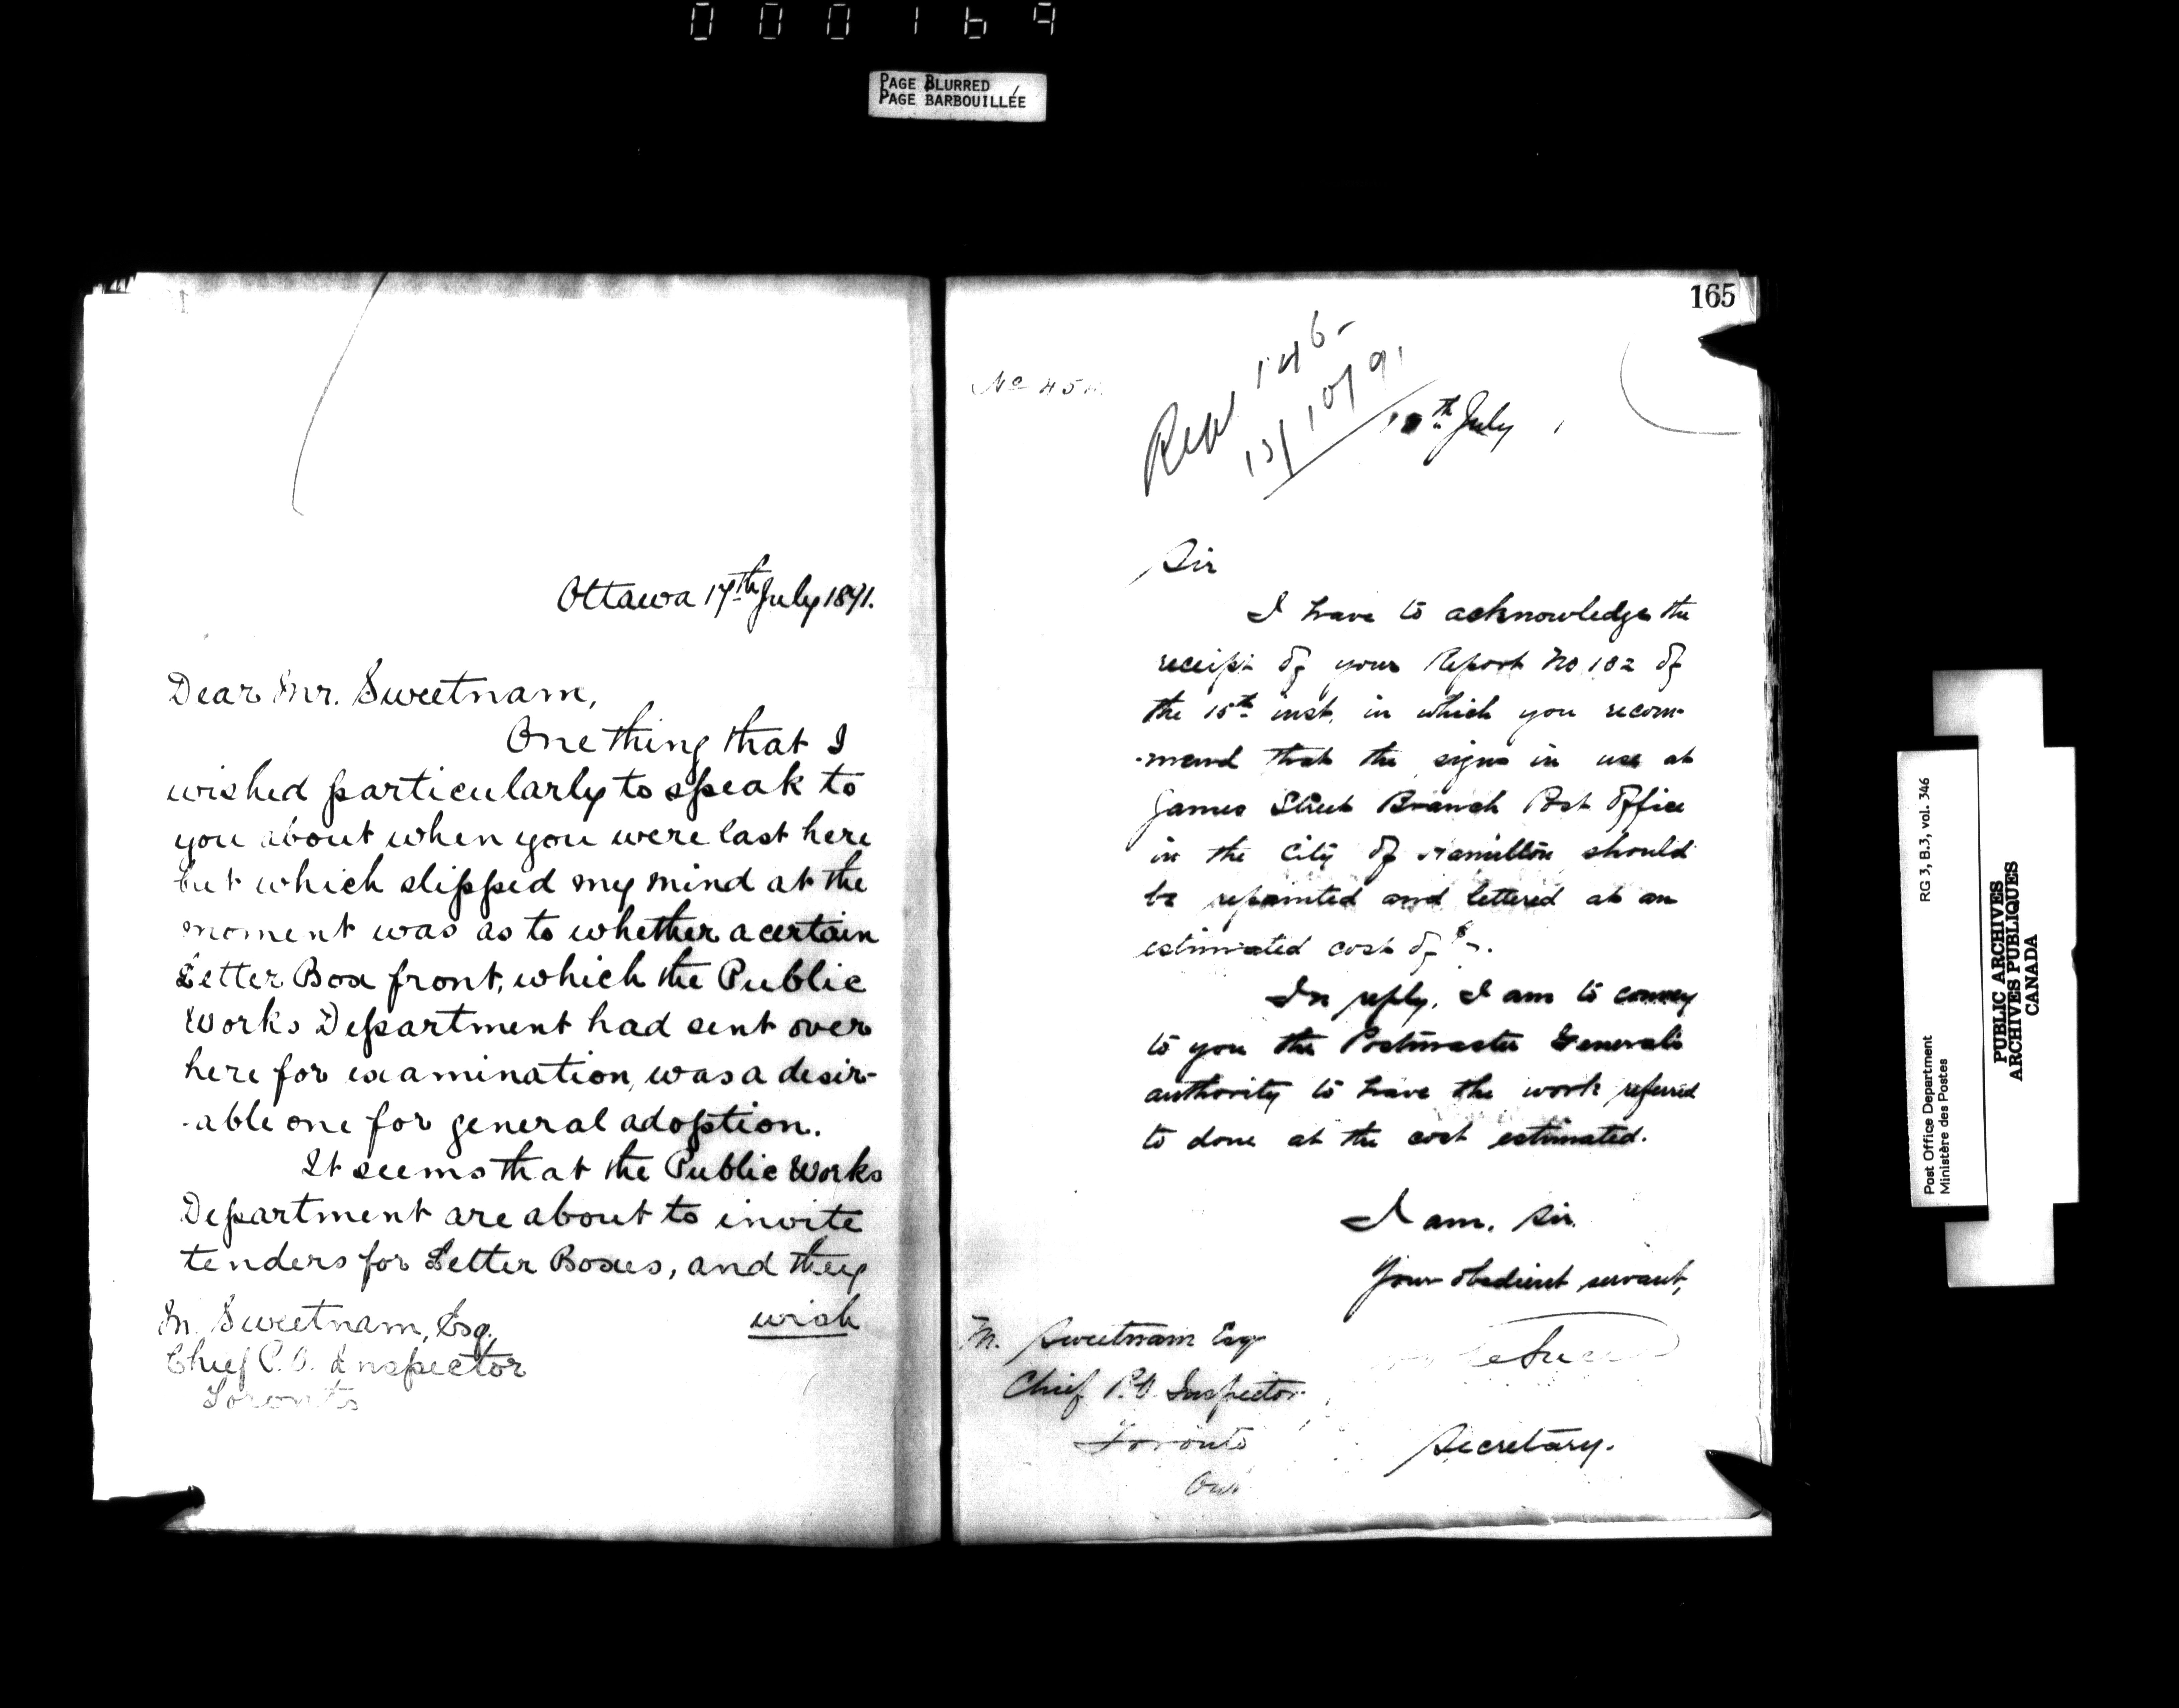 000169
PAGE BLURRED
PAGE BARBOUILLÉE
Ottawa 17th July 1891.
Dear Mr. Sweetnam,
One thing that I
wished particularly to speak to
you about when you were last here
but which slipped my mind at the
moment was as to whether a certain
Letter Box front, which the Public
Works Department had sent over
here for examination, was a desir-
-able one for general adoption.
It seems that the Public Works
Department are about to invite
tenders for Letter Boxes, and they
wish
M. Sweetnam, Esq.
Chief P.O. Inspector
Toronto
165
No 45
146
/10/91
th July
Sir
I have to acknowledge the
receipt of your Report No 102 of
the 15th inst. in which you recom-
-mend that the signs in use at
James Street Branch Post Office
in the City of Hamilton should
be repainted and lettered at an
estimated cost of $
In reply, I am to convey
to you the Postmaster General's
authority to have the work referred
to done at the cost estimated.
I am, Sir.
Your obedient servant,
Secretary.
M. Sweetnam Esq
Chief P.O. Inspector
Toronto
Ont
RG 3, B.3, vol. 346
Post Office Department
Ministère des Postes
PUBLIC ARCHIVES
ARCHIVES PUBLIQUES
CANADA